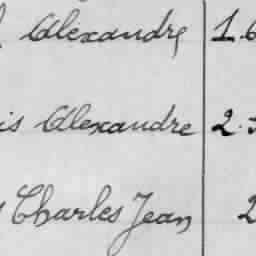 Alexandre 1.6
is Alexandre 2.
Charles Jean 2